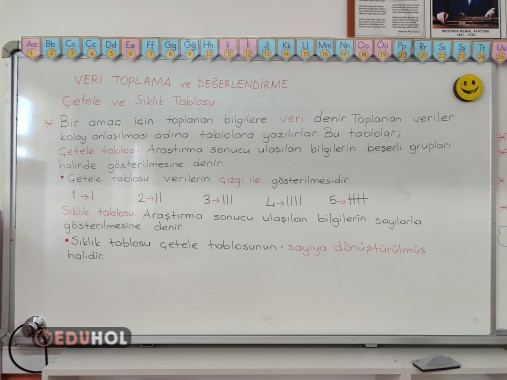 Aa Bb Cc Çç Dd Ee Ff Gg Ğğ Hh Iı İi Jj Kk Ll Mm Nn Oo Öö Pp Rr Ss Şş Tt Uu
VERİ TOPLAMA ve DEĞERLENDİRME
Çetele ve Sıklık Tablosu
* Bir amaç için toplanan bilgilere veri denir. Toplanan veriler
kolay anlaşılması adına tablolara yazılırlar. Bu tablolar;
Çetele tablosu Araştırma sonucu ulaşılan bilgilerin beşerli grupları
halinde gösterilmesine denir.
• Çetele tablosu verilerin çizgi ile gösterilmesidir.
1→| 2→|| 3→||| 4→|||| 5→||||
Sıklık tablosu Araştırma sonucu ulaşılan bilgilerin sayılarla
gösterilmesine denir.
• Sıklık tablosu çetele tablosunun sayıya dönüştürülmüş
halidir.
EDUHOL